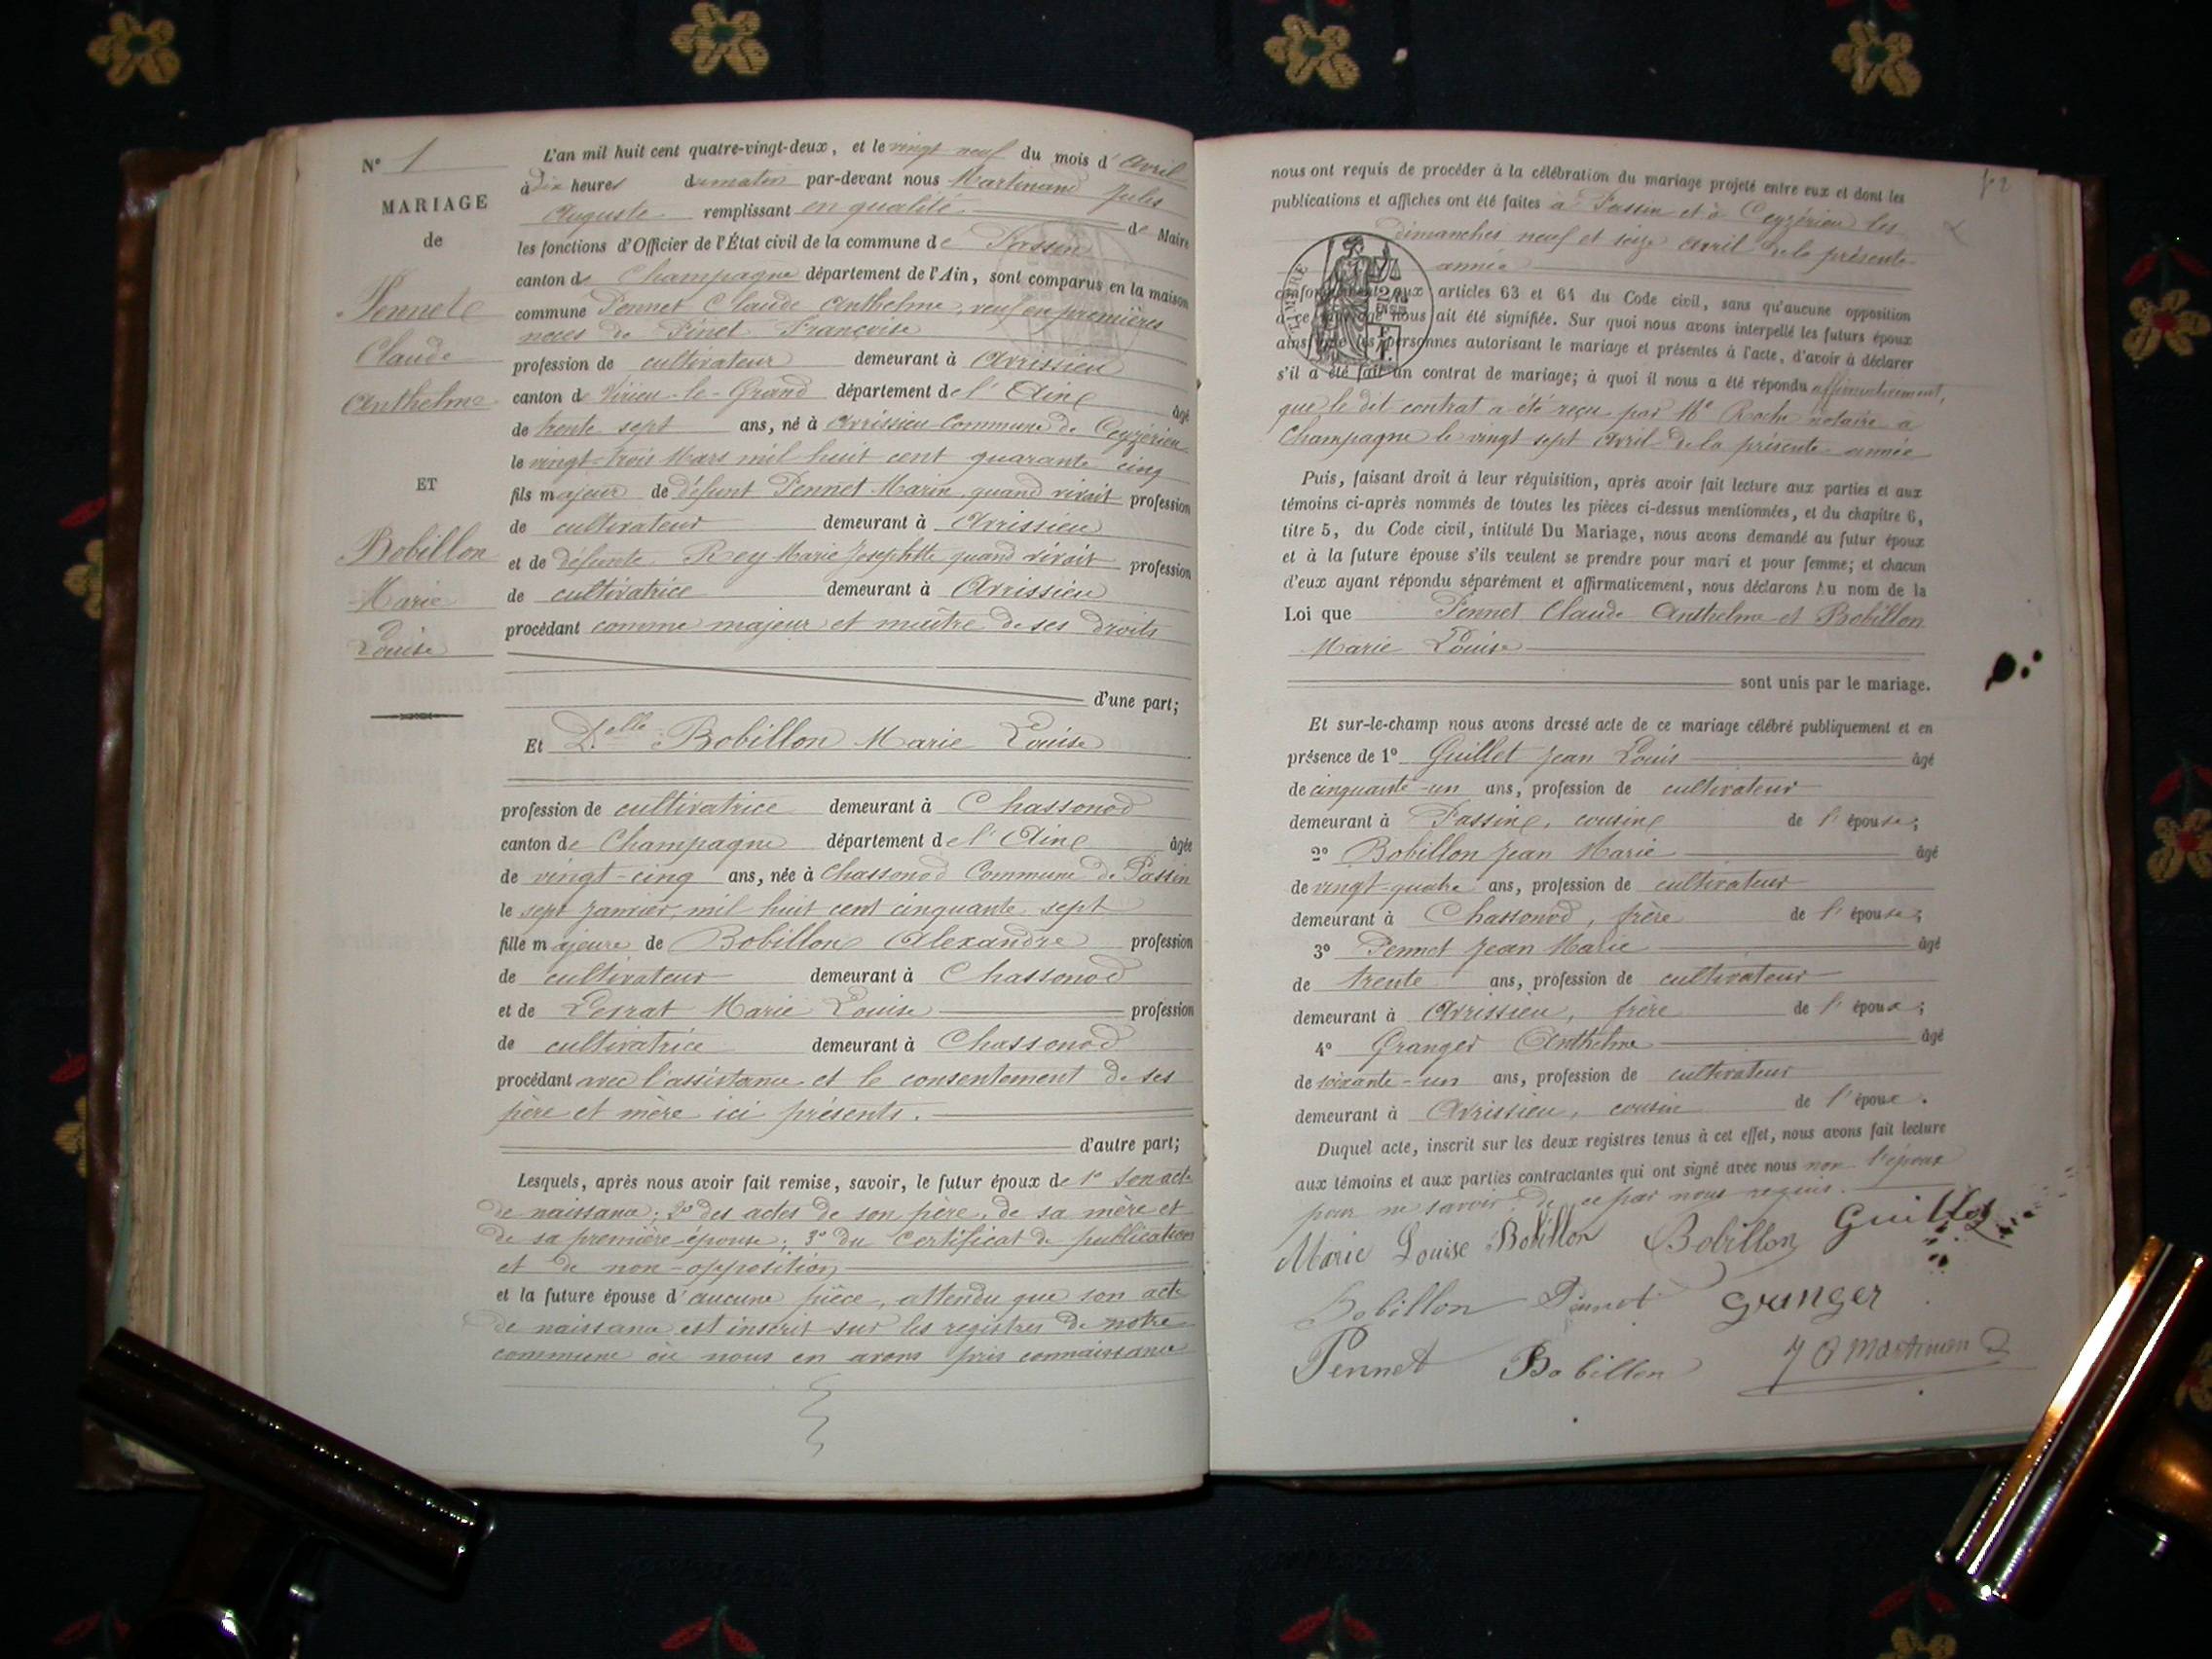 N° 1
MARIAGE
de
Pennet
Claude
Anthelme
ET
Bobillon
Marie
Louise
L'an mil huit cent quatre-vingt-deux, et le vingt neuf du mois d'Avril
à dix heures du matin par-devant nous Martinand Jules
Auguste remplissant en qualité de Maire
les fonctions d'Officier de l'État civil de la commune de Passin
canton de Champagne département de l'Ain, sont comparus en la maison
commune Pennet Claude Anthelme, veuf en premières
noces de Pinet Françoise
profession de cultivateur demeurant à Avrissieu
canton de Virieu-le-Grand département de l'Ain âgé
de trente sept ans, né à Avrissieu Commune de Ceyzérieu
le vingt-trois Mars mil huit cent quarante cinq
fils majeur de défunt Pennet Marin, quand vivait profession
de cultivateur demeurant à Avrissieu
et de défunte Rey Marie Josephtte quand vivait profession
de cultivatrice demeurant à Avrissieu
procédant comme majeur et maître de ses droits
d'une part;
Et Delle Bobillon Marie Louise
profession de cultivatrice demeurant à Chassonod
canton de Champagne département de l'Ain âgée
de vingt-cinq ans, née à Chassonod Commune de Passin
le sept Janvier, mil huit cent cinquante sept
fille majeure de Bobillon Alexandre profession
de cultivateur demeurant à Chassonod
et de Lesrat Marie Louise profession
de cultivatrice demeurant à Chassonod
procédant avec l'assistance et le consentement de ses
père et mère ici présents.
d'autre part;
Lesquels, après nous avoir fait remise, savoir, le futur époux de 1° son acte
de naissance; 2° des actes de son père, de sa mère et
de sa première épouse; 3° du Certificat de publication
et de non-opposition
et la future épouse d'aucune pièce, attendu que son acte
de naissance est inscrit sur les registres de notre
commune où nous en avons pris connaissance
nous ont requis de procéder à la célébration du mariage projeté entre eux et dont les
publications et affiches ont été faites à Passin et à Ceyzérieu les
dimanches neuf et seize avril de la présente
année
TIMBRE
conformément aux articles 63 et 64 du Code civil, sans qu'aucune opposition
à ce mariage nous ait été signifiée. Sur quoi nous avons interpellé les futurs époux
ainsi que les personnes autorisant le mariage et présentes à l'acte, d'avoir à déclarer
s'il a été fait un contrat de mariage; à quoi il nous a été répondu affirmativement,
que le dit contrat a été reçu par Me Roche notaire à
Champagne le vingt sept Avril de la présente année
Puis, faisant droit à leur réquisition, après avoir fait lecture aux parties et aux
témoins ci-après nommés de toutes les pièces ci-dessus mentionnées, et du chapitre 6,
titre 5, du Code civil, intitulé Du Mariage, nous avons demandé au futur époux
et à la future épouse s'ils veulent se prendre pour mari et pour femme; et chacun
d'eux ayant répondu séparément et affirmativement, nous déclarons Au nom de la
Loi que Pennet Claude Anthelme et Bobillon
Marie Louise
sont unis par le mariage.
Et sur-le-champ nous avons dressé acte de ce mariage célébré publiquement et en
présence de 1° Guillet Jean Louis âgé
de cinquante-un ans, profession de cultivateur
demeurant à Passin, cousin de l'épouse;
2° Bobillon Jean Marie âgé
de vingt-quatre ans, profession de cultivateur
demeurant à Chassonod, frère de l'épouse;
3° Pennet Jean Marie âgé
de trente ans, profession de cultivateur
demeurant à Avrissieu, frère de l'époux;
4° Granger Anthelme âgé
de soixante-un ans, profession de cultivateur
demeurant à Avrissieu, cousin de l'époux.
Duquel acte, inscrit sur les deux registres tenus à cet effet, nous avons fait lecture
aux témoins et aux parties contractantes qui ont signé avec nous non l'époux
pour ne savoir de ce par nous requis.
Marie Louise Bobillon Bobillon Guillet
Bobillon Pennet Granger
Pennet Bobillon J A Martinand